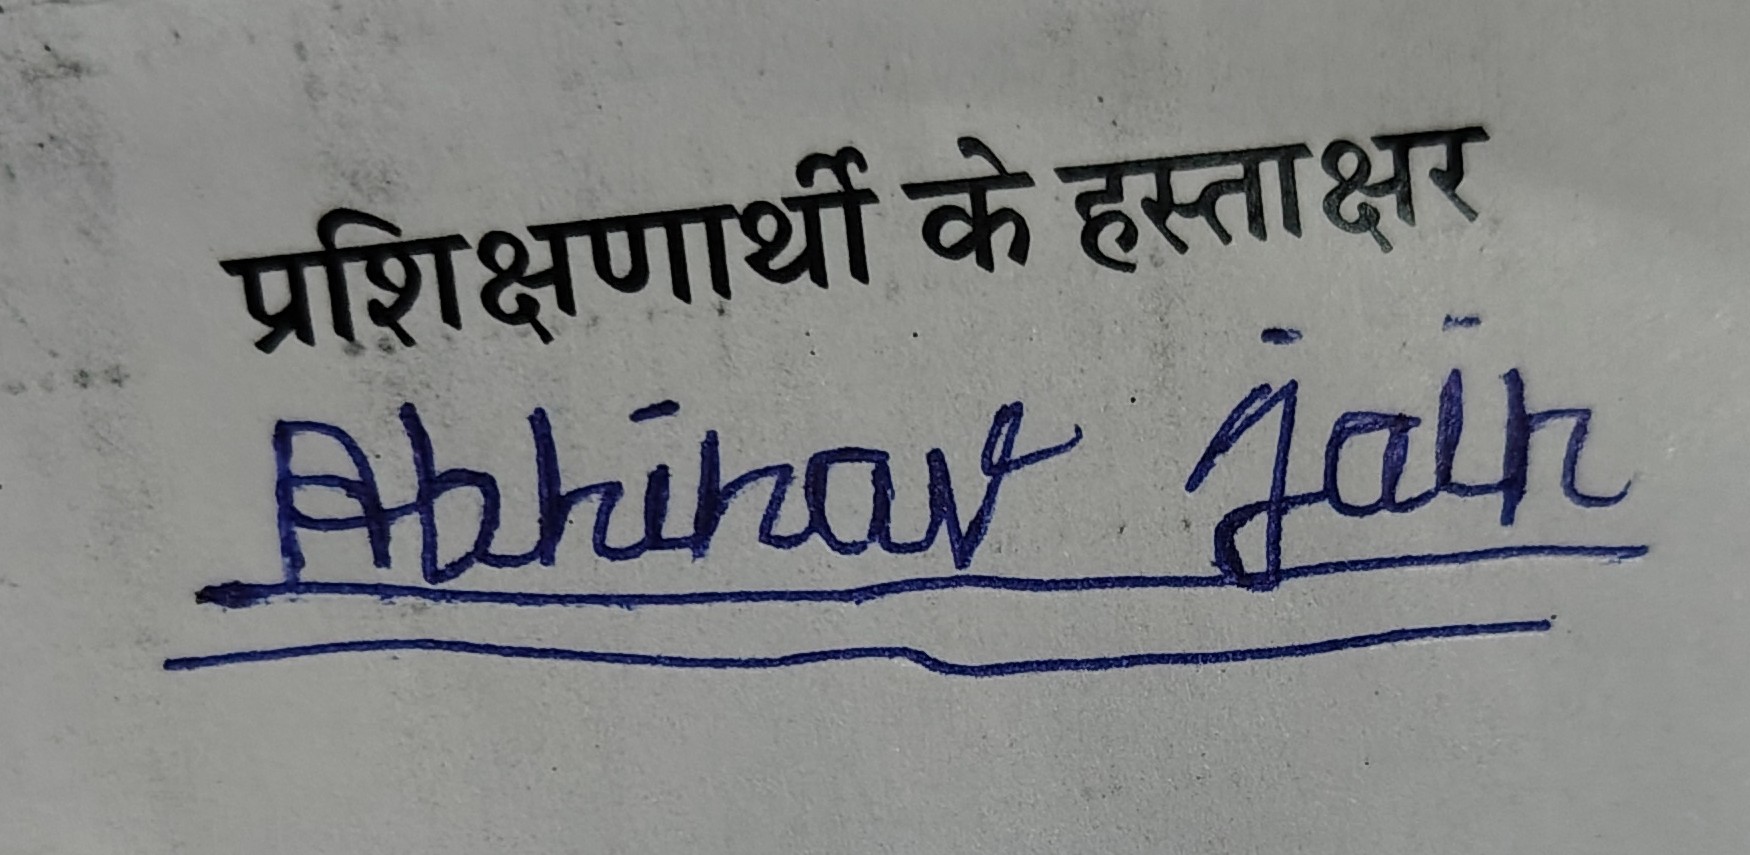 प्रशिक्षणार्थी के हस्ताक्षर
Abhinav Jain